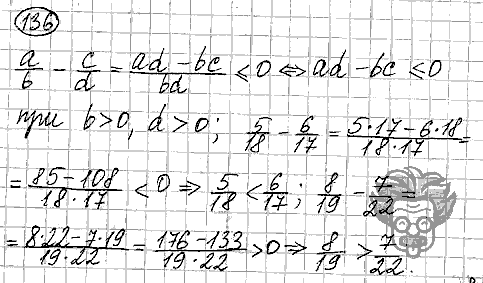 136
a/b − c/d = (ad − bc)/bd ≤ 0 ⇔ ad − bc ≤ 0
при b > 0, d > 0; 5/18 − 6/17 = (5·17 − 6·18)/(18·17) =
= (85 − 108)/(18·17) < 0 ⇒ 5/18 < 6/17; 8/19 − 7/22 =
= (8·22 − 7·19)/(19·22) = (176 − 133)/(19·22) > 0 ⇒ 8/19 > 7/22.